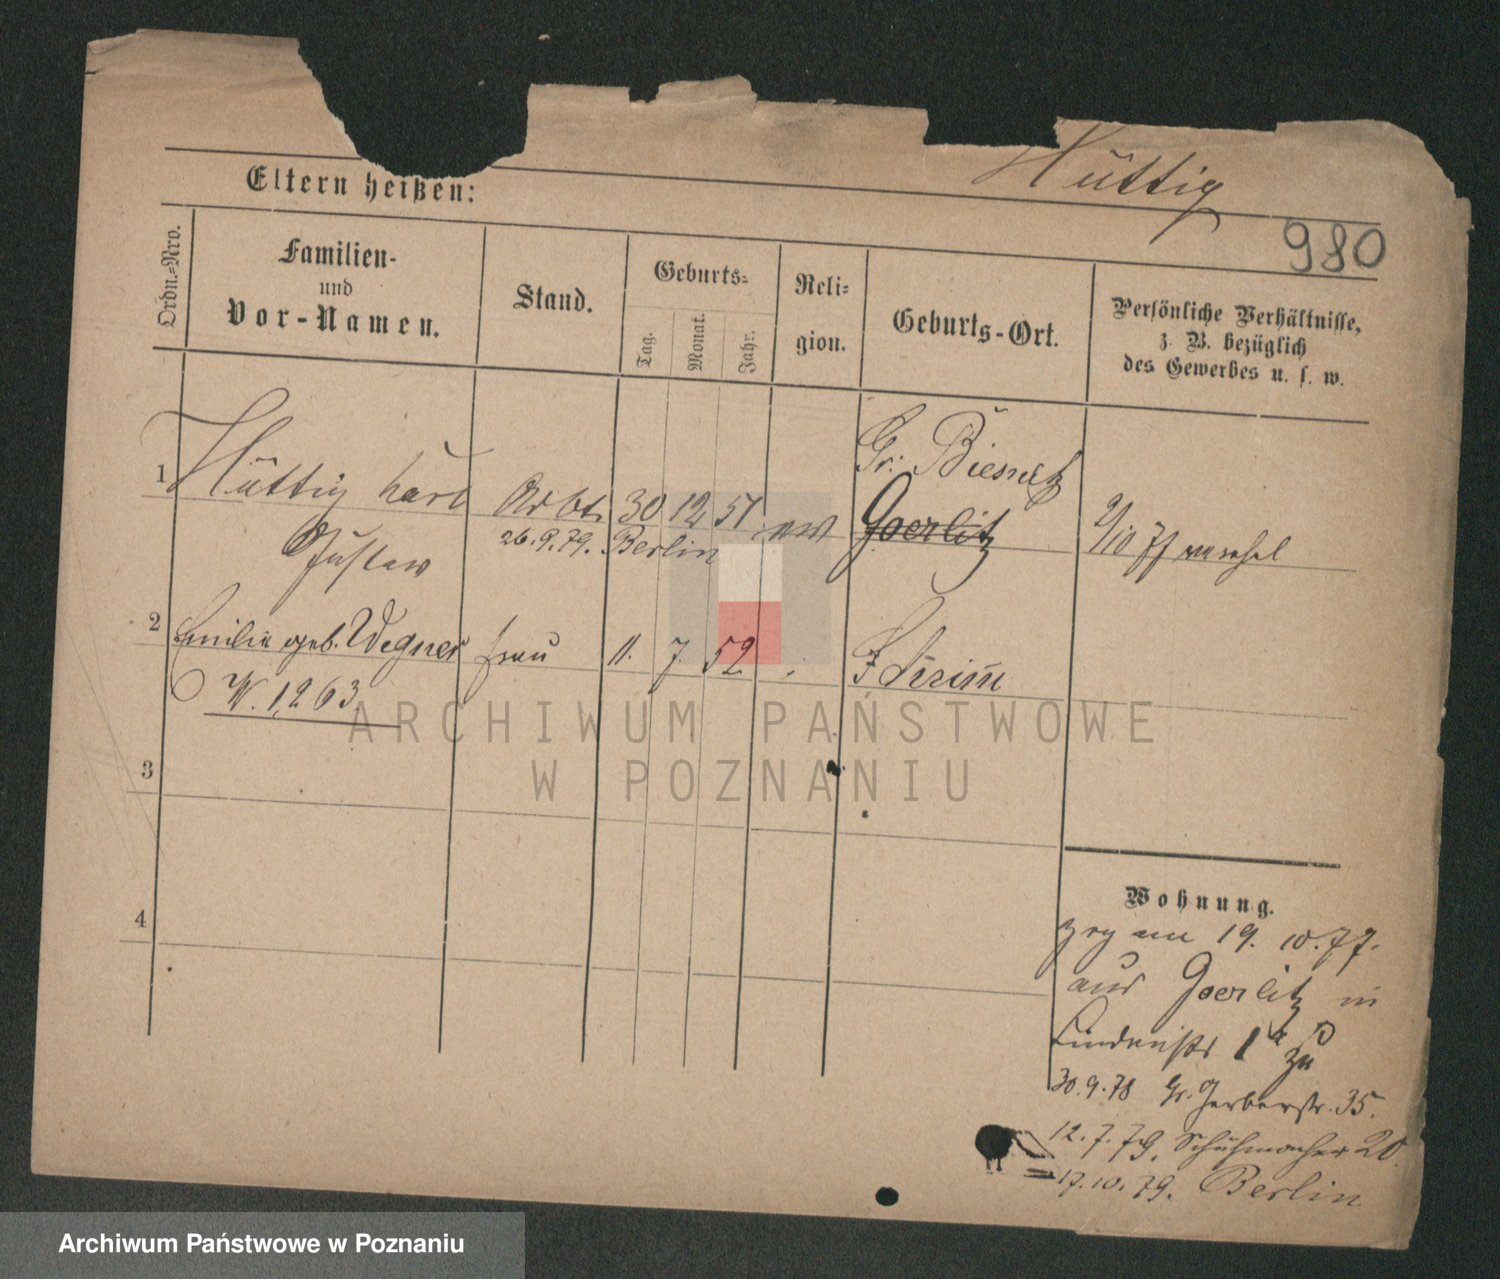 Hüttig
Eltern heißen:
980
Ordn.=Nro.
Familien-
und
Vor-Namen.
Stand.
Geburts=
Tag.
Monat.
Jahr.
Reli=
gion.
Geburts-Ort.
Persönliche Verhältnisse,
z. B. bezüglich
des Gewerbes u. s. w.
Gr. Biesnitz
1 Hüttig Karl Arbt. 30 12 51 ew Goerlitz
Gustav 26.9.79. Berlin
2 Emilie geb. Wegner Frau 11. 7. 52 Schrimm
N. 1263
3
4
Wohnung.
zog am 19. 10. 77.
aus Goerlitz in
Lindenstr 1a zu
30.9.78 Gr. Gerberstr. 35.
12.7.79. Schuhmacher 20.
17.10.79. Berlin
ARCHIWUM PAŃSTWOWE
W POZNANIU
Archiwum Państwowe w Poznaniu